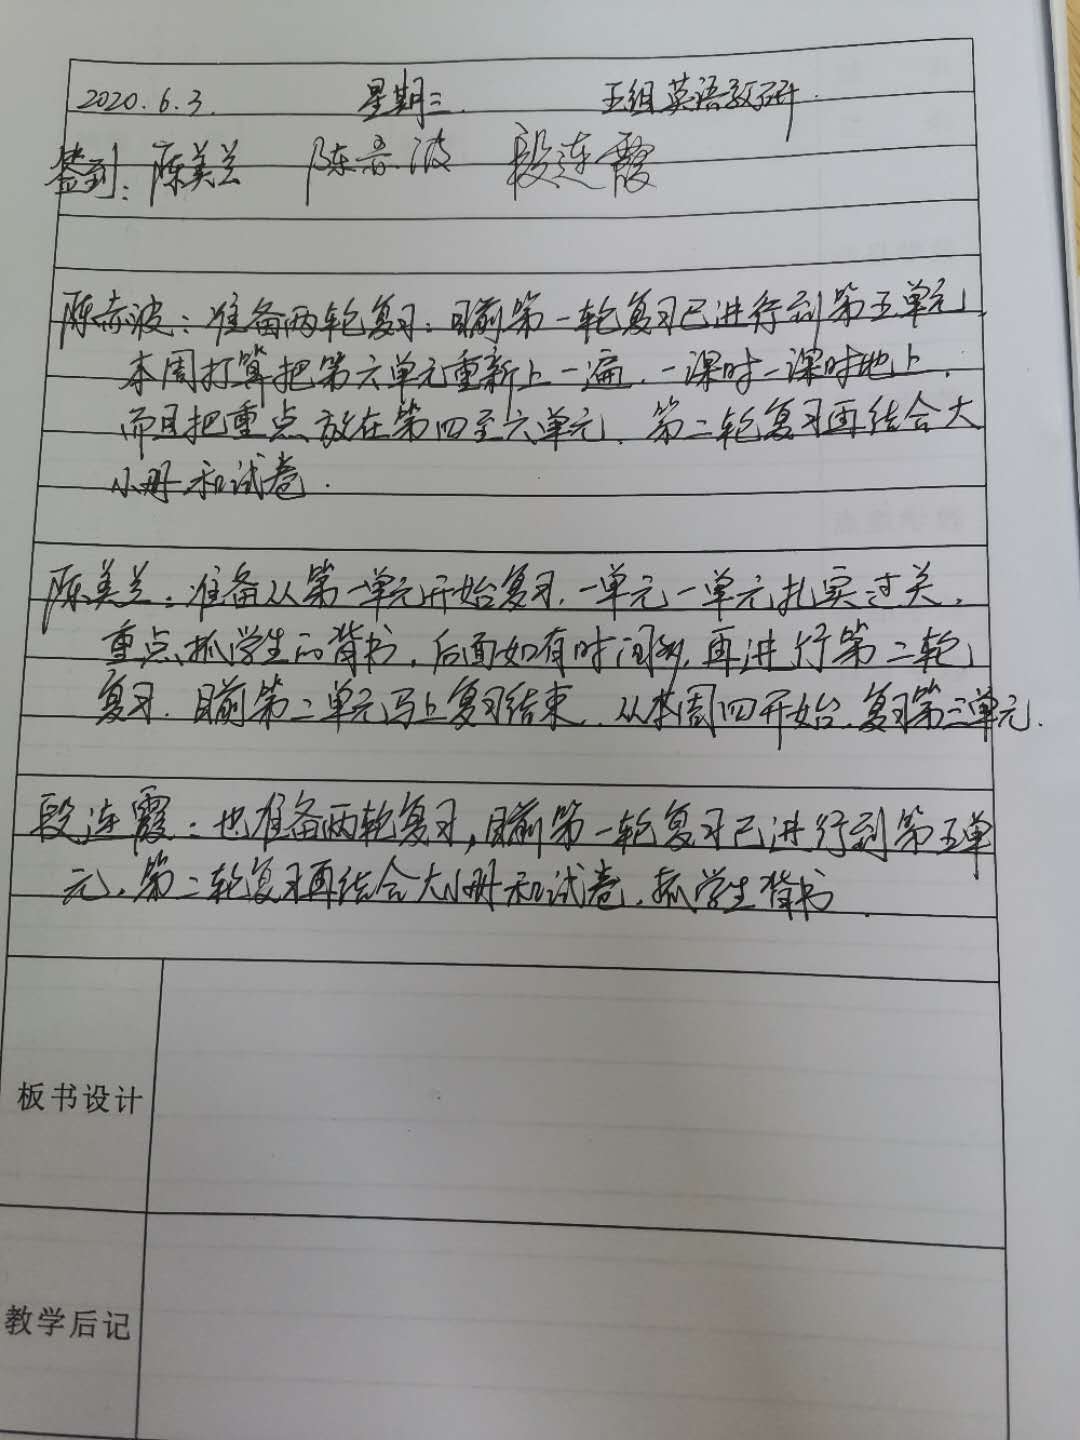 2020.6.3. 星期三. 五组英语教研.
签到: 陈美兰 陈春波 段连霞
陈春波: 准备两轮复习: 目前第一轮复习已进行到第五单元,
本周打算把第六单元重新上一遍, 一课时一课时地上,
而且把重点放在第四至六单元. 第二轮复习再结合大
小册和试卷.
陈美兰: 准备从第一单元开始复习, 一单元一单元扎实过关,
重点抓学生的背书, 后面如有时间, 再进行第二轮
复习. 目前第二单元马上复习结束, 从本周四开始, 复习第三单元.
段连霞: 也准备两轮复习, 目前第一轮复习已进行到第五单
元, 第二轮复习再结合大小册和试卷, 抓学生背书.
板书设计
教学后记